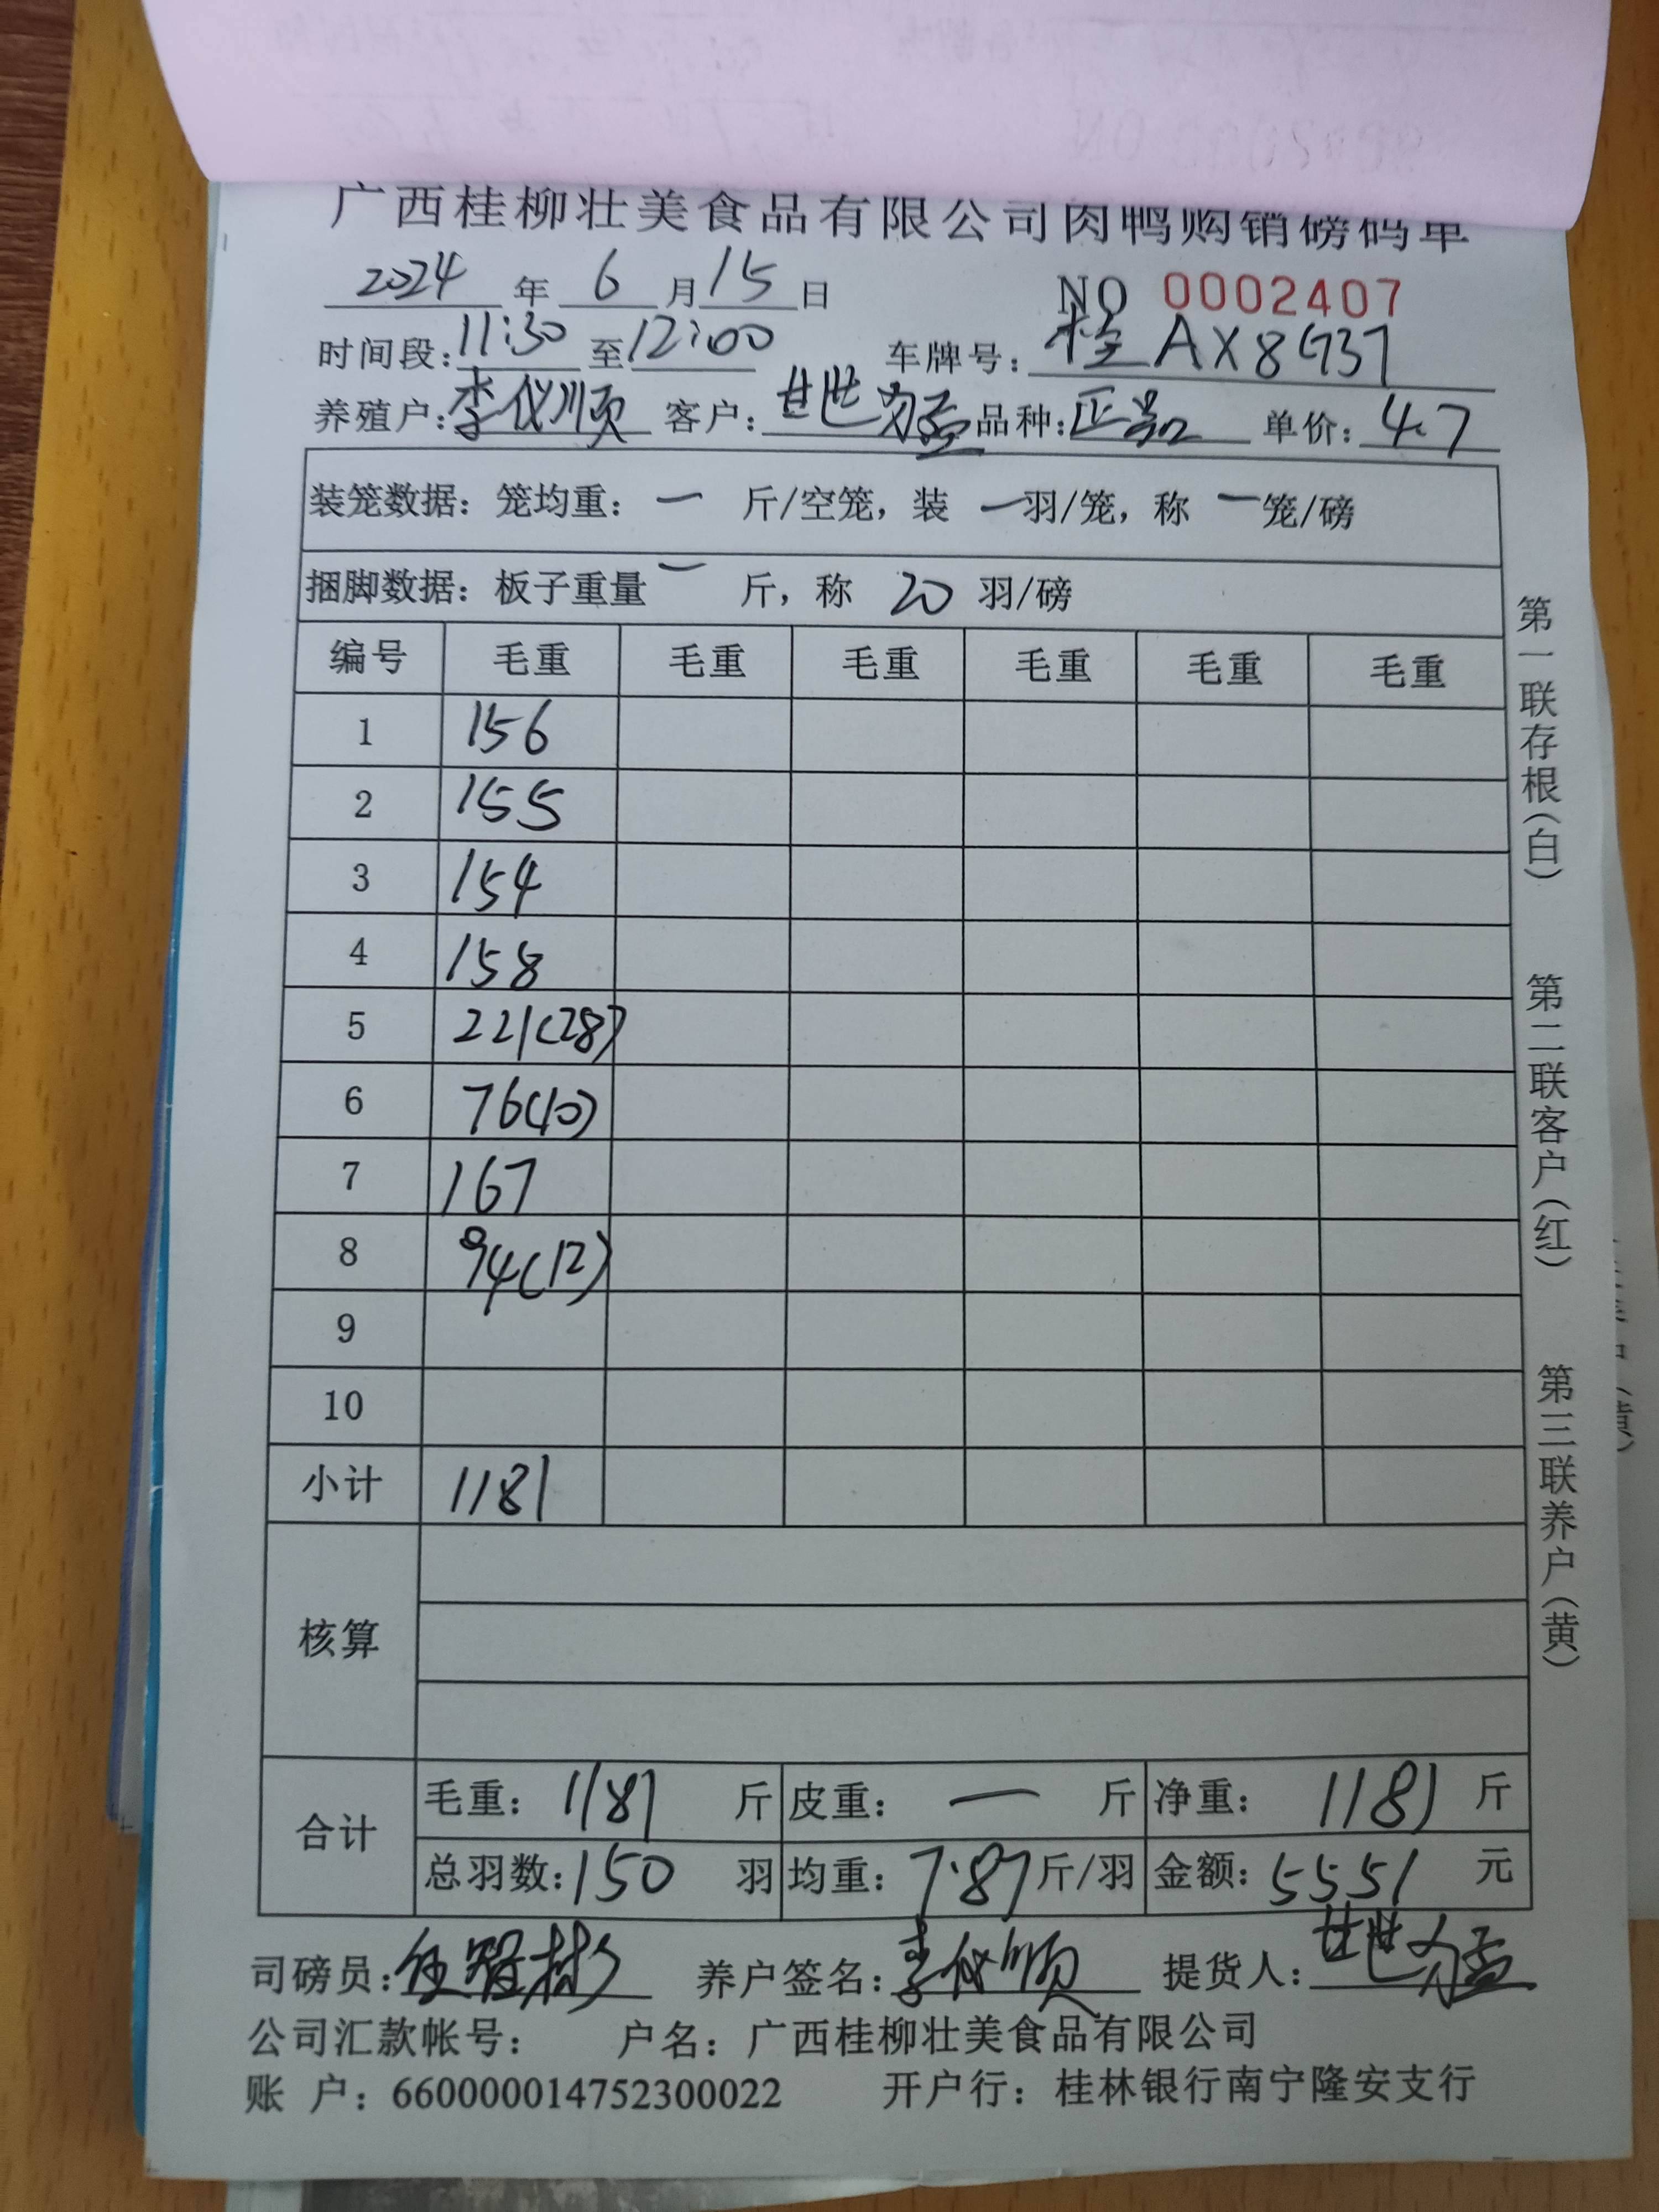 广西桂柳壮美食品有限公司肉鸭购销磅码单
2024年6月15日 NO 0002407
时间段:11:30至12:00 车牌号:桂AX8G37
养殖户:李仪顺 客户: 品种:正品 单价:4.7
装笼数据:笼均重:一 斤/空笼,装 一羽/笼,称 一笼/磅
捆脚数据:板子重量 一 斤,称 20 羽/磅
编号 毛重 毛重 毛重 毛重 毛重 毛重
1 156
2 155
3 154
4 158
5 221(28)
6 76(10)
7 167
8 94(12)
9
10
小计 1181
核算
合计 毛重:1181 斤 皮重:一 斤 净重:1181 斤
总羽数:150 羽 均重:7.87斤/羽 金额:5551 元
司磅员: 养户签名:李仪顺 提货人:
公司汇款帐号: 户名:广西桂柳壮美食品有限公司
账 户:660000014752300022 开户行:桂林银行南宁隆安支行
第一联存根(白) 第二联客户(红) 第三联养户(黄)